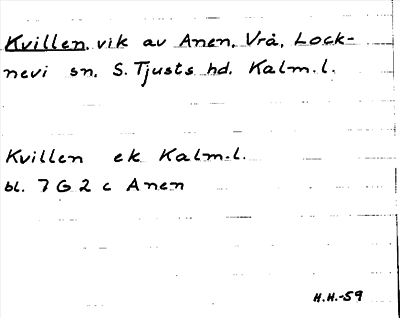 Kvillen, vik av Anen, Vrå, Lock-
nevi sn. S. Tjusts hd. Kalm. l.
Kvillen ek Kalm. l.
bl. 7 G 2 c Anen
H.H.-59